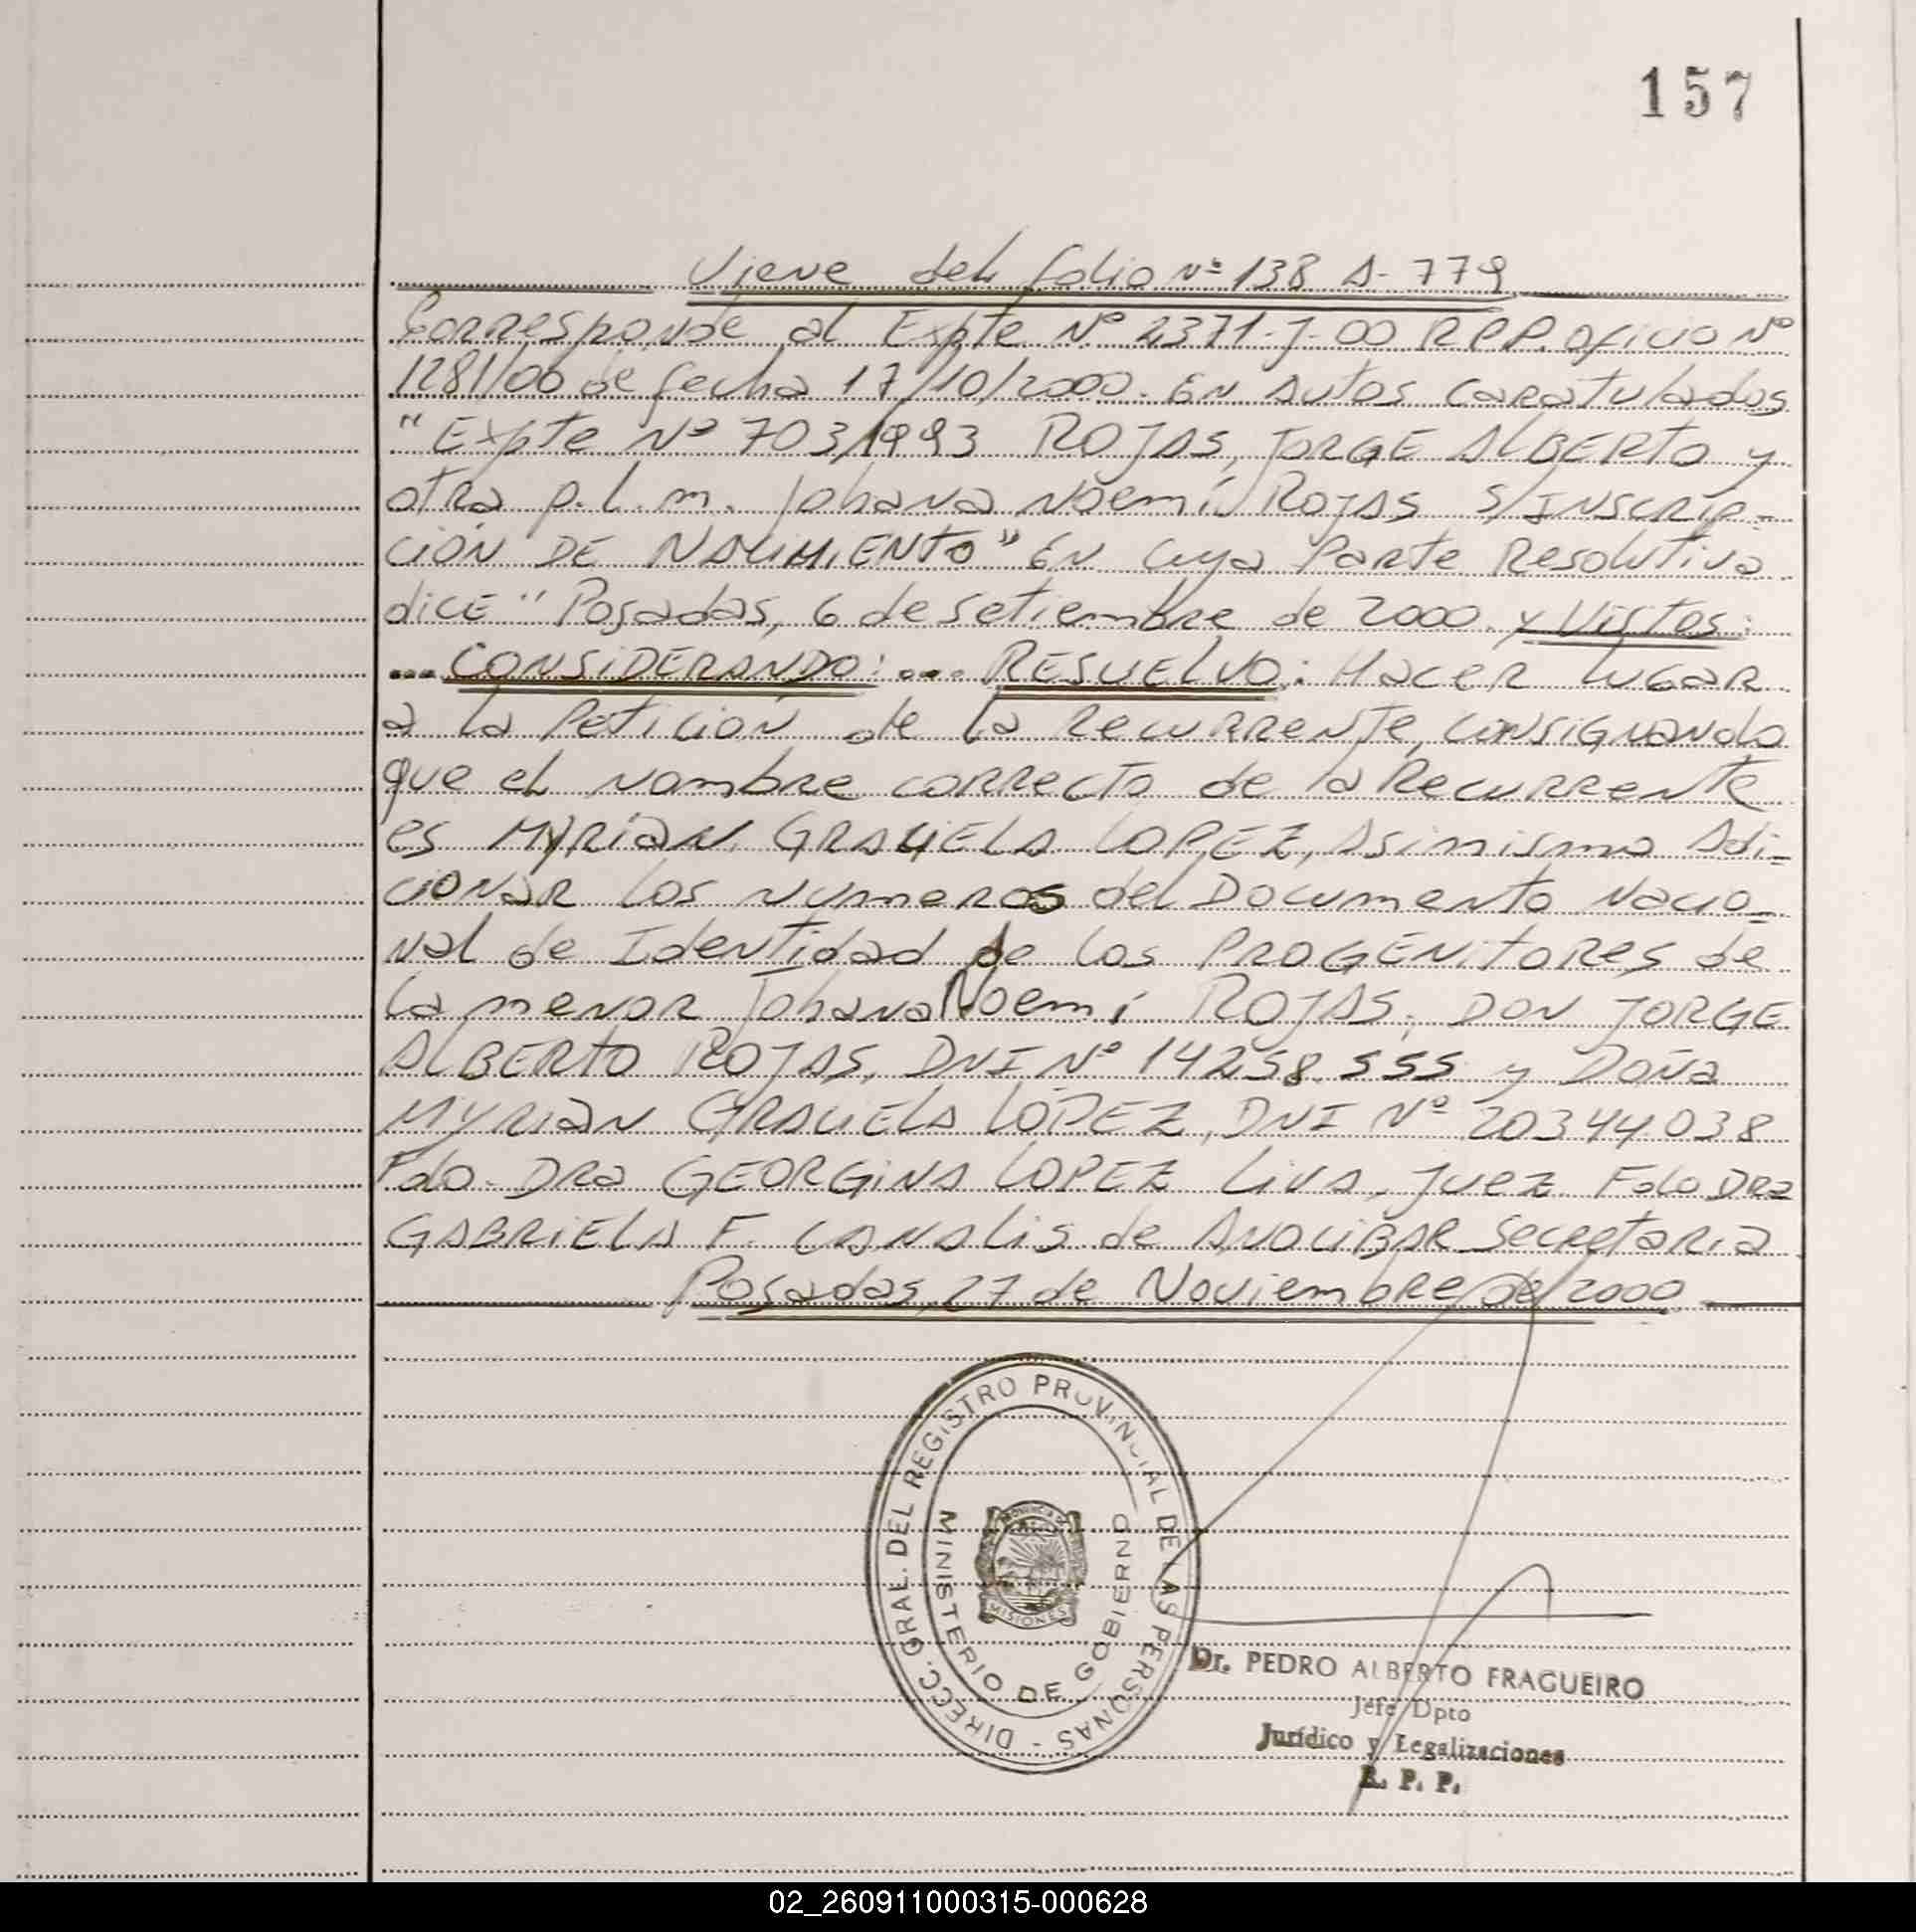 157
Viene del folio Nº 138 A-779
Corresponde al Expte Nº 2371-J-00 R.P.P. oficio Nº
1281/00 de fecha 17/10/2000. En Autos caratulados
"Expte Nº 703/1993 ROJAS, JORGE ALBERTO y
otra p.l.m. Johana Noemí ROJAS S/INSCRIP=
CION DE NACIMIENTO" EN cuya Parte Resolutiva
dice "Posadas, 6 de setiembre de 2000. y Vistos:
... CONSIDERANDO: ... RESUELVO: Hacer lugar
a la Petición de la recurrente, consignando
que el nombre correcto de la Recurrente
es MYRIAN GRACIELA LOPEZ, Asimismo Adi=
cionar los numeros del Documento Nacio=
nal de Identidad de los PROGENITORES de
la menor Johana Noemí ROJAS, DON JORGE
ALBERTO ROJAS, DNI Nº 14258.555 y Doña
MYRIAN GRACIELA LÓPEZ, DNI Nº 20344.038
Fdo. Dra GEORGINA LOPEZ LIVA, Juez Fdo Dra
GABRIELA F. CANALIS de ANOCIBAR Secretaria
Posadas, 27 de Noviembre de 2000
DIRECC. GRAL. DEL REGISTRO PROVINCIAL DE LAS PERSONAS -
MINISTERIO DE GOBIERNO
MISIONES
Dr. PEDRO ALBERTO FRAGUEIRO
Jefe Dpto
Jurídico y Legalizaciones
R. P. P.
02_260911000315-000628